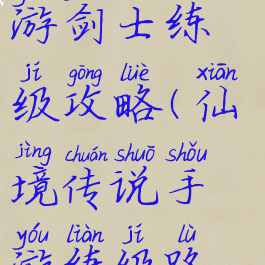 游剑士练
jí gōng lüè xiān
级攻略(仙
jìng chuán shuō shǒu
境传说手
yóu liàn jí lù
游练级路